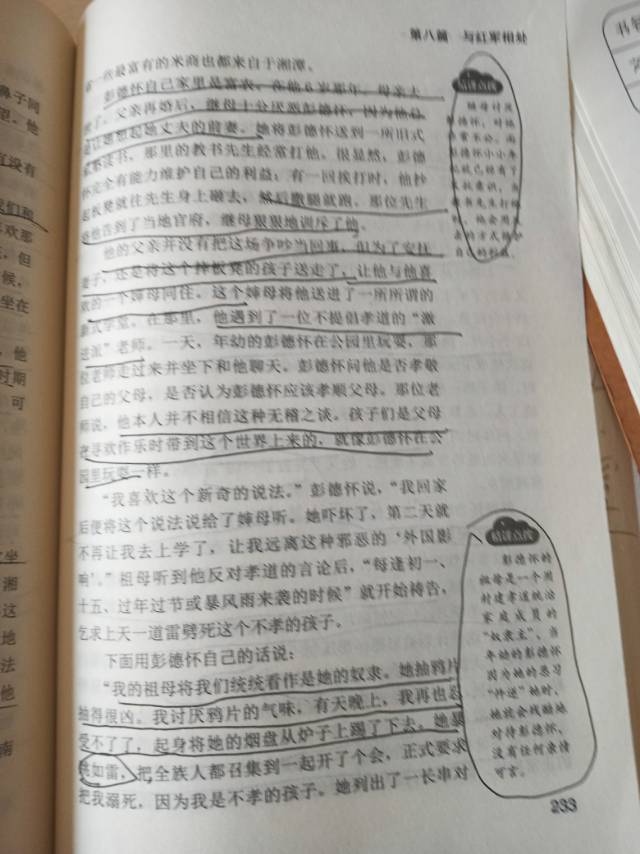 第八篇 与红军相处
一些最富有的米商也都来自于湘潭。
彭德怀自己家里是富农，在他6岁那年，母亲去
父亲再婚后，继母十分厌恶彭德怀，因为他总
让她想起场丈夫的前妻。她将彭德怀送到一所旧式
读书，那里的教书先生经常打他。很显然，彭德
怀完全有能力维护自己的利益；有一回挨打时，他抄
起板凳就往先生身上砸去，然后撒腿就跑。那位先生
他告到了当地官府，继母狠狠地训斥了他。
他的父亲并没有把这场争吵当回事，但为了安抚
妻子，还是将这个摔板凳的孩子送走了，让他与他喜
欢的一个婶母同住，这个婶母将他送进了一所所谓的
新式学堂。在那里，他遇到了一位不提倡孝道的“激
进派”老师。一天，年幼的彭德怀在公园里玩耍，那
位老师走过来并坐下和他聊天。彭德怀问他是否孝敬
自己的父母，是否认为彭德怀应该孝顺父母。那位老
师说，他本人并不相信这种无稽之谈。孩子们是父母
在寻欢作乐时带到这个世界上来的，就像彭德怀在公
园里玩耍一样。
“我喜欢这个新奇的说法。”彭德怀说，“我回家
后便将这个说法说给了婶母听。她吓坏了，第二天就
不再让我去上学了，让我远离这种邪恶的‘外国影
响’。”祖母听到他反对孝道的言论后，“每逢初一、
十五、过年过节或暴风雨来袭的时候”就开始祷告，
乞求上天一道雷劈死这个不孝的孩子。
下面用彭德怀自己的话说：
“我的祖母将我们统统看作是她的奴隶。她抽鸦片
抽得很凶。我讨厌鸦片的气味，有天晚上，我再也忍
受不了了，起身将她的烟盘从炉子上踢了下去。她暴
跳如雷，把全族人都召集到一起开了个会，正式要求
把我溺死，因为我是不孝的孩子。她列出了一长串对
精读点拨
继母讨厌
彭德怀，对他
非常不公。而
彭德怀小小年
自己的利益。
精读点拨
彭德怀的
祖母是一个用
封建孝道统治
家庭成员的
“奴隶主”，当
年幼的彭德怀
因为她的恶习
“忤逆”她时，
她就会残酷地
对待彭德怀，
没有任何亲情
可言。
233